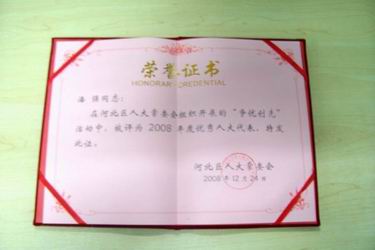 荣誉证书
HONORARY CREDENTIAL
强同志：
在河北区人大常委会组织开展的“争优创先”
活动中，被评为2008年度优秀人大代表，特发
此证。
河北区人大常委会
2008年12月24日